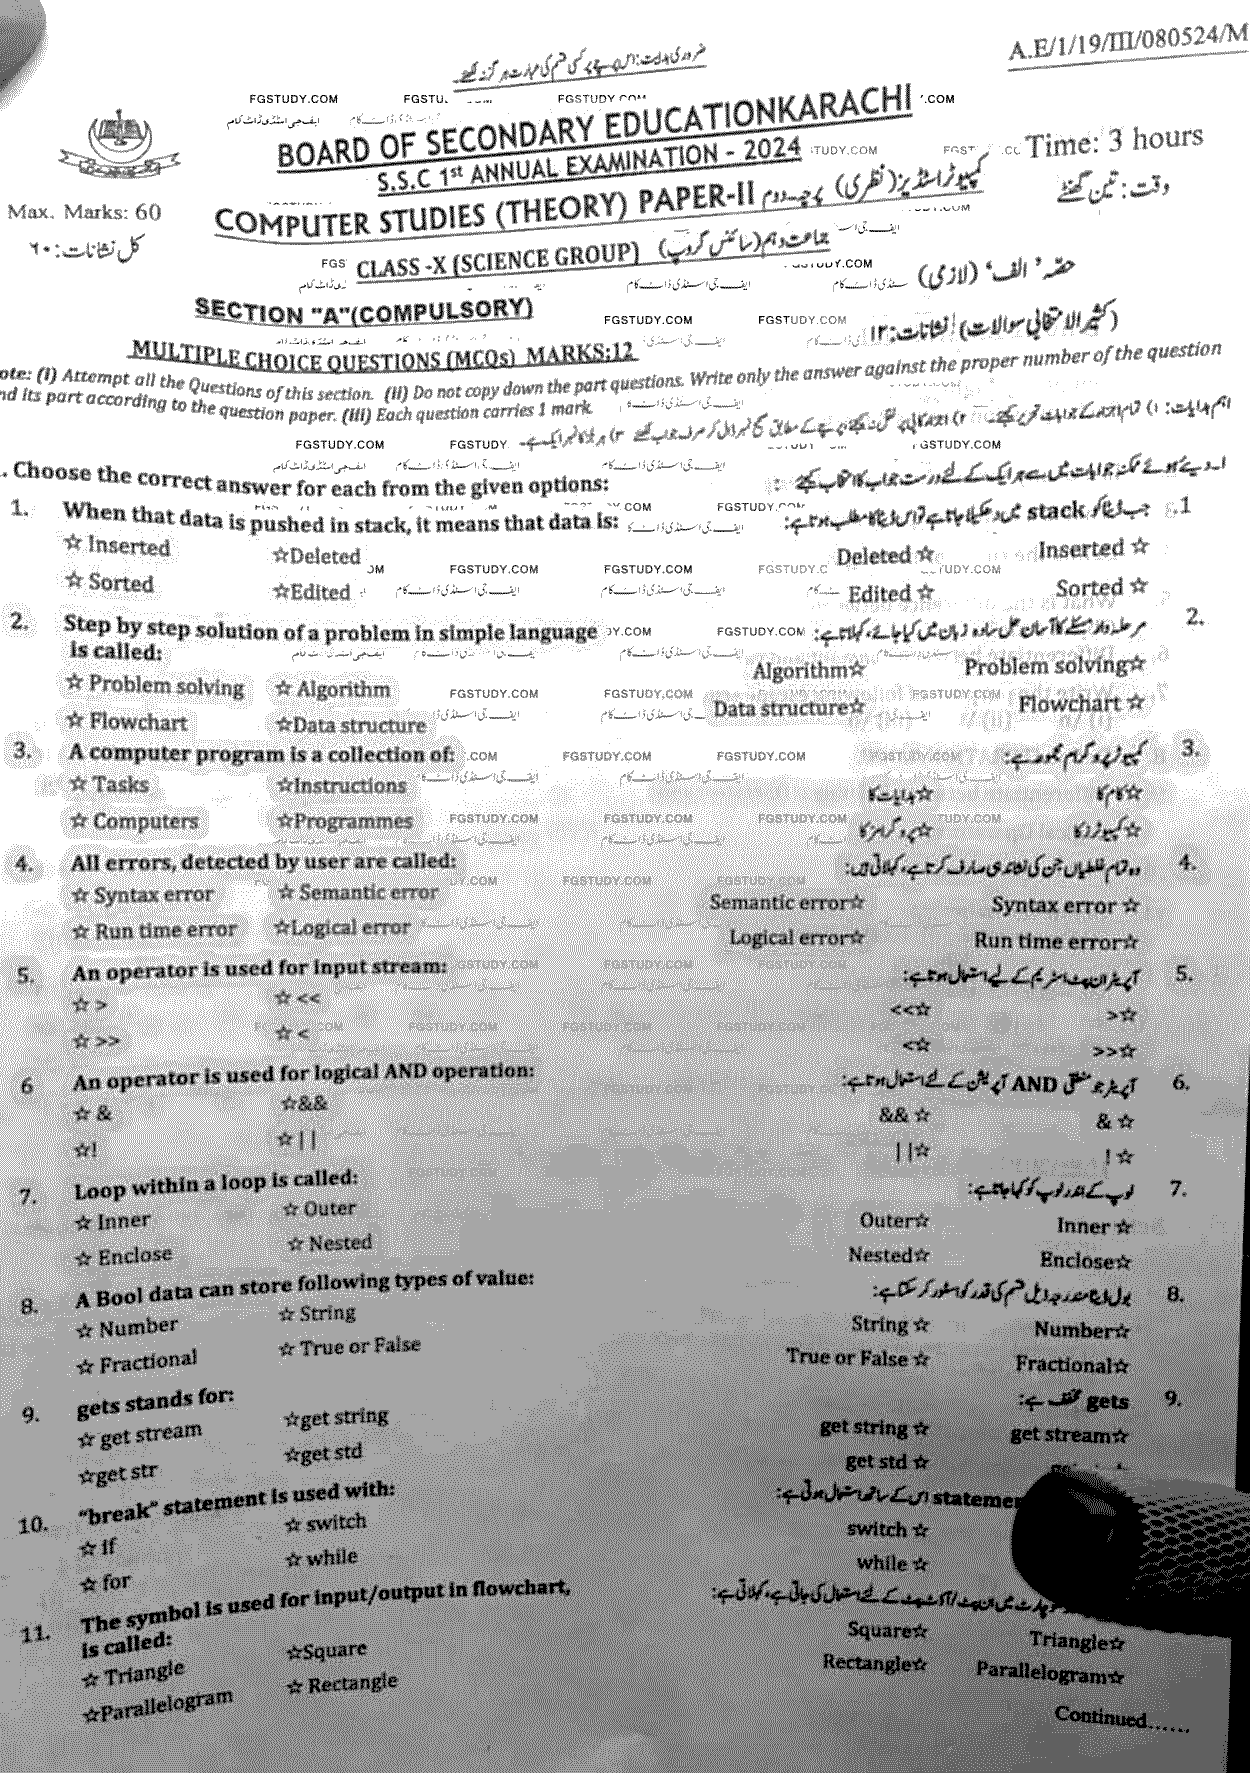 A.E/1/19/III/080524/M
ضروری ہدایت: اس پرچے پر کسی قسم کی عبارت ہرگز نہ لکھئے
BOARD OF SECONDARY EDUCATIONKARACHI
S.S.C 1st ANNUAL EXAMINATION - 2024
Time: 3 hours
وقت: تین گھنٹے
COMPUTER STUDIES (THEORY) PAPER-II کمپیوٹر اسٹڈیز (نظری) پرچہ دوم
Max. Marks: 60
کل نشانات: ۶۰
CLASS -X (SCIENCE GROUP) جماعت دہم (سائنس گروپ)
SECTION "A"(COMPULSORY)
حصہ 'الف' (لازمی)
MULTIPLE CHOICE QUESTIONS (MCQs) MARKS:12
(کثیر الانتخابی سوالات) نشانات: ۱۲
ote: (i) Attempt all the Questions of this section. (ii) Do not copy down the part questions. Write only the answer against the proper number of the question
nd its part according to the question paper. (iii) Each question carries 1 mark.
. Choose the correct answer for each from the given options:
ا۔ دیئے ہوئے ممکنہ جوابات میں سے ہر ایک کے لئے درست جواب کا انتخاب کیجئے:
1. When that data is pushed in stack, it means that data is:
1. جب ڈیٹا کو stack میں دھکیلا جاتا ہے تو اس ڈیٹا کا مطلب ہوتا ہے:
☆ Inserted ☆Deleted Deleted ☆ Inserted ☆
☆ Sorted ☆Edited Edited ☆ Sorted ☆
2. Step by step solution of a problem in simple language
is called:
2. مرحلہ وار مسئلے کا آسان حل سادہ زبان میں کیا جائے، کہلاتا ہے:
☆ Problem solving ☆ Algorithm Algorithm☆ Problem solving☆
☆ Flowchart ☆Data structure Data structure☆ Flowchart ☆
3. A computer program is a collection of:
3. کمپیوٹر پروگرام مجموعہ ہے:
☆ Tasks ☆Instructions ☆ہدایات کا ☆کام کا
☆ Computers ☆Programmes ☆پروگرامز کا ☆کمپیوٹرز کا
4. All errors, detected by user are called:
4. وہ تمام غلطیاں جن کی نشاندہی صارف کرتا ہے، کہلاتی ہیں:
☆ Syntax error ☆ Semantic error Semantic error☆ Syntax error ☆
☆ Run time error ☆Logical error Logical error☆ Run time error☆
5. An operator is used for input stream:
5. آپریٹر ان پٹ اسٹریم کے لیے استعمال ہوتا ہے:
☆ > ☆ << <<☆ >☆
☆ >> ☆ < <☆ >>☆
6 An operator is used for logical AND operation:
6. آپریٹر جو منطقی AND آپریشن کے لئے استعمال ہوتا ہے:
☆ & ☆&& && ☆ & ☆
☆! ☆ || ||☆ ! ☆
7. Loop within a loop is called:
7. لوپ کے اندر لوپ کو کہا جاتا ہے:
☆ Inner ☆ Outer Outer☆ Inner ☆
☆ Enclose ☆ Nested Nested☆ Enclose☆
8. A Bool data can store following types of value:
8. بول ڈیٹا مندرجہ ذیل قسم کی قدر کو اسٹور کر سکتا ہے:
☆ Number ☆ String String ☆ Number☆
☆ Fractional ☆ True or False True or False ☆ Fractional☆
9. gets stands for:
9. gets مخفف ہے:
☆ get stream ☆get string get string ☆ get stream☆
☆get str ☆get std get std ☆
10. "break" statement is used with:
statement اس کے ساتھ استعمال ہوتی ہے:
☆ if ☆ switch switch ☆
☆ for ☆ while while ☆
11. The symbol is used for input/output in flowchart,
is called:
چارٹ میں ان پٹ/آؤٹ پٹ کے لئے استعمال کی جاتی ہے، کہلاتی ہے:
☆ Triangle ☆Square Square☆ Triangle☆
☆Parallelogram ☆ Rectangle Rectangle☆ Parallelogram☆
Continued......
FGSTUDY.COM
ایف جی اسٹڈی ڈاٹ کام